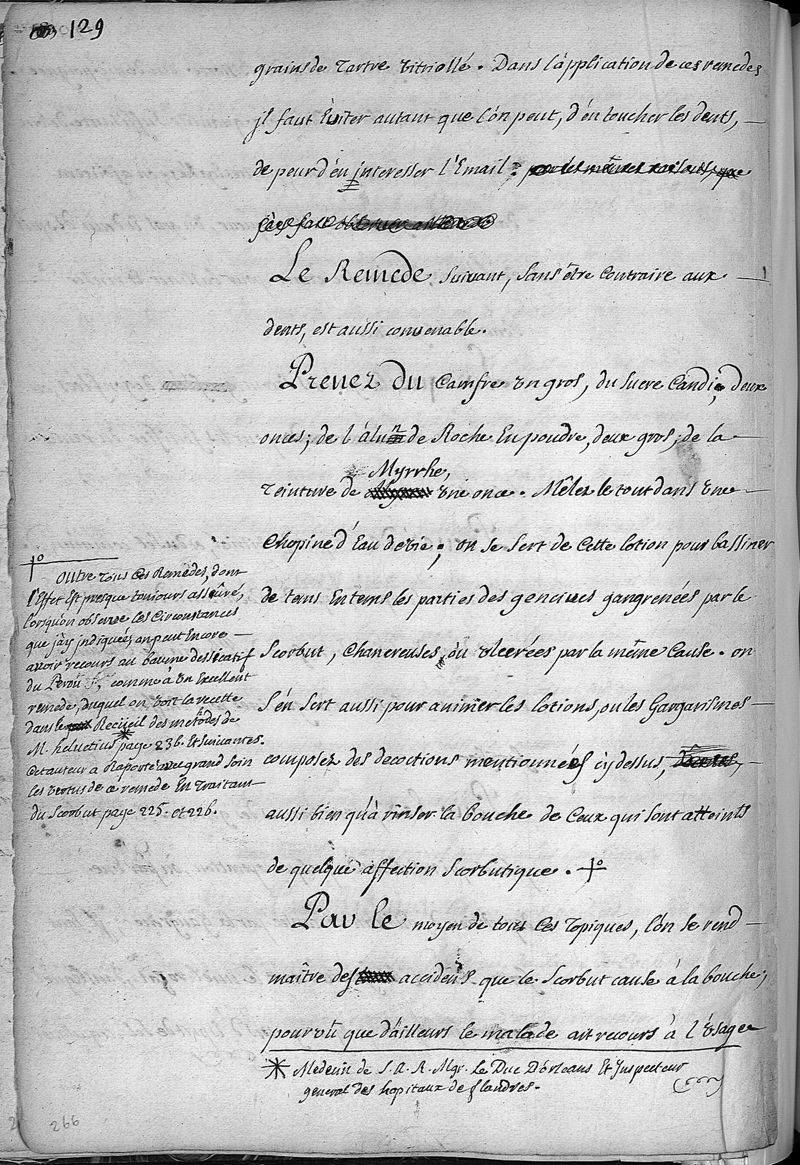 129
grains de Tartre Vitriollé. Dans l'application de ces remedes
jl faut Eviter autant que l'on peut, d'en toucher les dents,
de peur d'en jnteresser l'Email:
Le Remede suivant, sans être Contraire aux
dents, est aussi convenable.
Prenez du Camfre Un gros, du Sucre Candi, deux
onces; de l'alun de Roche En poudre, deux gros; de la
Myrrhe,
Teinture de une once. Mêlez le tout dans Une
Chopine d'Eau de vie; on se sert de Cette lotion pour bassiner
de tems En tems les parties des gencives gangrenées par le
Scorbut, Chancreuses, ou Ulcerées par la même Cause. on
s'en sert aussi pour animer les lotions, ou les Gargarismes
composez des decoctions mentionnées cy dessus,
aussi bien qu'à rinser la bouche de Ceux qui sont atteints
de quelque affection Scorbutique. †o
Par le moyen de tous Ces Topiques, l'on se rend
maître des accidens que le Scorbut cause à la bouche,
pourvû que d'ailleurs le malade ait recours à l'Usage
†o
Outre tous Ces Remedes, dont
l'Effet Est presque toujours assûré,
lorsqu'on observe les Circonstances
que j'ay jndiquées, on peut Encore
avoir recours au baume dessicatif
du Perou, comme à Un Excellent
remede, duquel on voit la recette
dans le Recueil des metodes de
M. helvetius * page 236. Et suivantes.
Cet auteur a Raporté avec grand soin
les vertus de ce remede En Traitant
du Scorbut page 225. et 226.
* Medecin de S. A. R. Mgr. Le Duc D'orleans Et Jnspecteur
general des hopitaux de flandres.
266